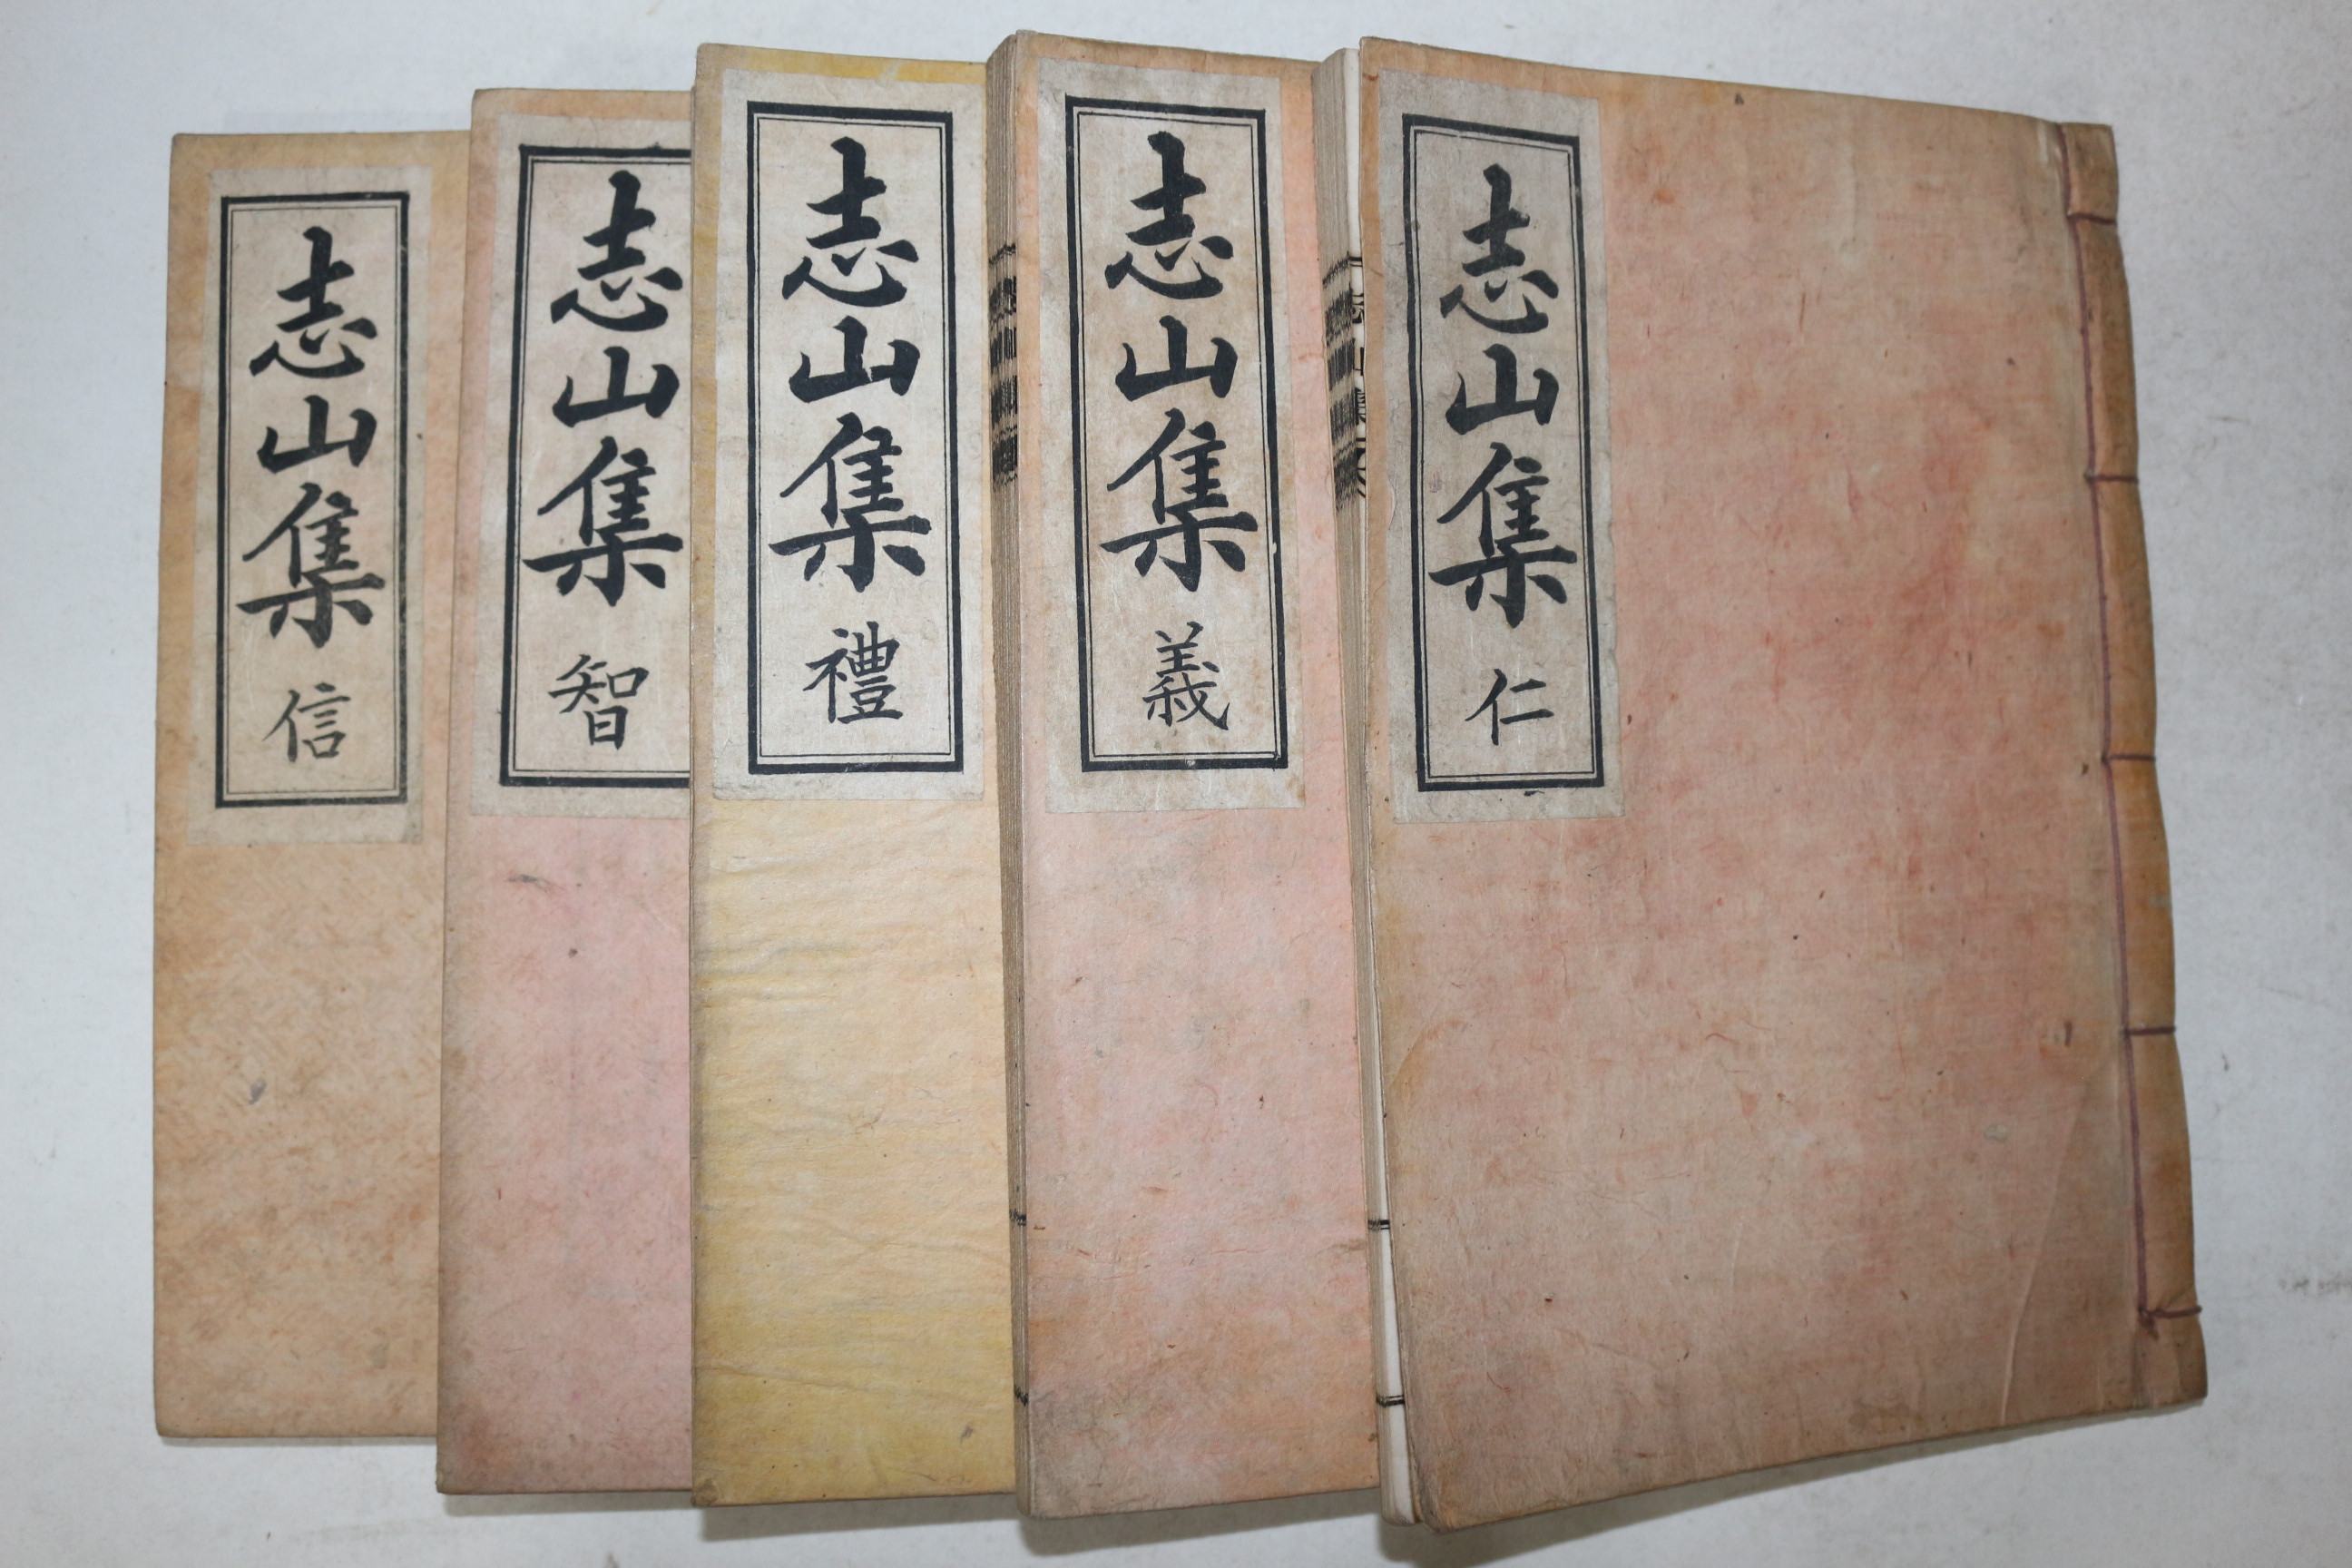 志山集 仁
志山集 義
志山集 禮
志山集 智
志山集 信